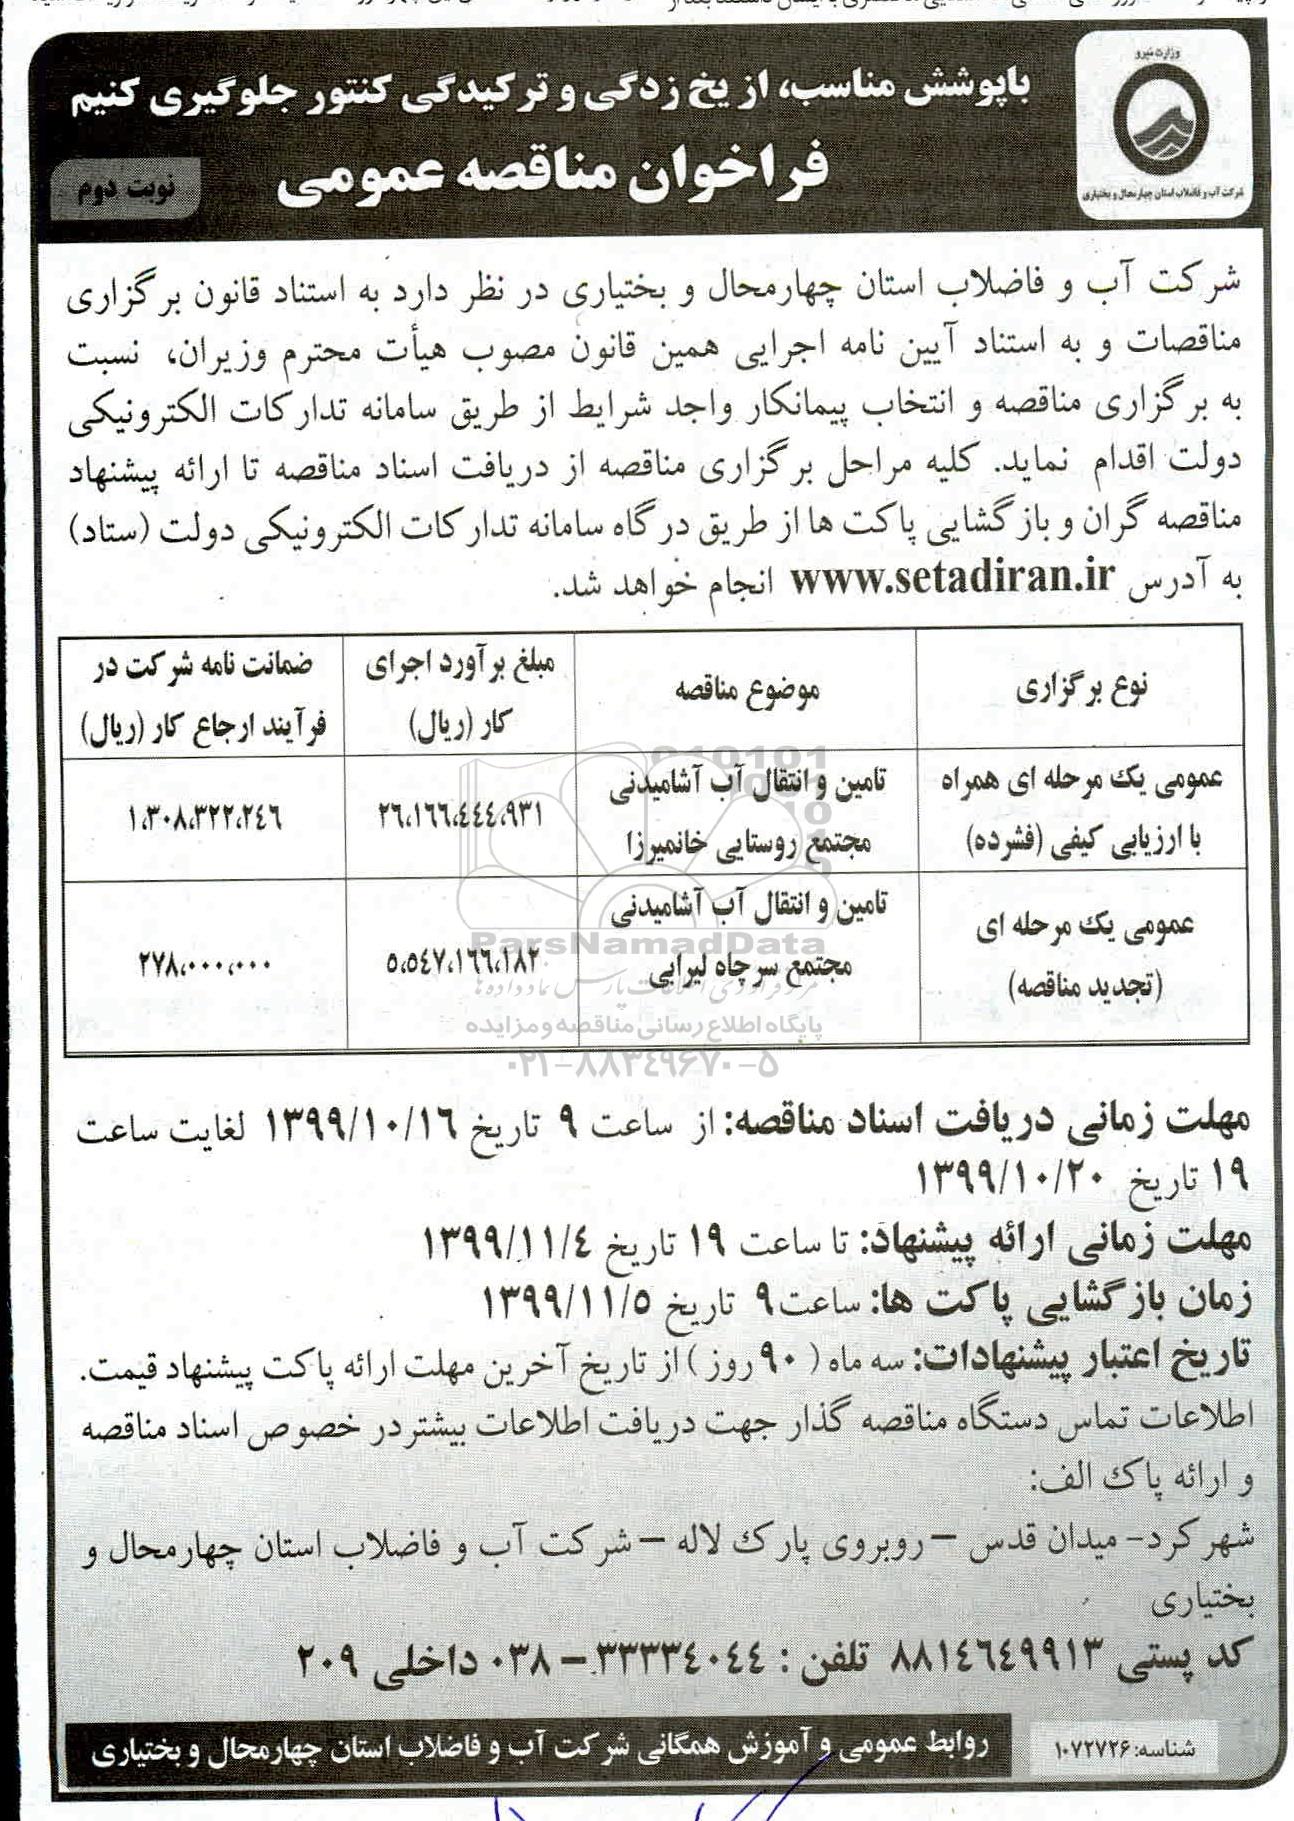 وزارت نیرو
شرکت آب و فاضلاب استان چهارمحال و بختیاری
باپوشش مناسب، از یخ زدگی و ترکیدگی کنتور جلوگیری کنیم
فراخوان مناقصه عمومی
نوبت دوم
شرکت آب و فاضلاب استان چهارمحال و بختیاری در نظر دارد به استناد قانون برگزاری
مناقصات و به استناد آیین نامه اجرایی همین قانون مصوب هیأت محترم وزیران، نسبت
به برگزاری مناقصه و انتخاب پیمانکار واجد شرایط از طریق سامانه تدارکات الکترونیکی
دولت اقدام نماید. کلیه مراحل برگزاری مناقصه از دریافت اسناد مناقصه تا ارائه پیشنهاد
مناقصه گران و بازگشایی پاکت ها از طریق درگاه سامانه تدارکات الکترونیکی دولت (ستاد)
به آدرس www.setadiran.ir انجام خواهد شد.
نوع برگزاری
موضوع مناقصه
مبلغ برآورد اجرای
کار (ریال)
ضمانت نامه شرکت در
فرآیند ارجاع کار (ریال)
عمومی یک مرحله ای همراه
با ارزیابی کیفی (فشرده)
تامین و انتقال آب آشامیدنی
مجتمع روستایی خانمیرزا
۲۶،۱۶۶،۴۴۴،۹۳۱
۱،۳۰۸،۳۲۲،۲۴۶
عمومی یک مرحله ای
(تجدید مناقصه)
تامین و انتقال آب آشامیدنی
مجتمع سرچاه لیرابی
۵،۵۴۷،۱۶۶،۱۸۲
۲۷۸،۰۰۰،۰۰۰
ParsNamadData
پایگاه اطلاع رسانی مناقصه و مزایده
۰۲۱-۸۸۳۴۹۶۷۰-۵
مهلت زمانی دریافت اسناد مناقصه: از ساعت ۹ تاریخ ۱۳۹۹/۱۰/۱۶ لغایت ساعت
۱۹ تاریخ ۱۳۹۹/۱۰/۲۰
مهلت زمانی ارائه پیشنهاد: تا ساعت ۱۹ تاریخ ۱۳۹۹/۱۱/۴
زمان بازگشایی پاکت ها: ساعت ۹ تاریخ ۱۳۹۹/۱۱/۵
تاریخ اعتبار پیشنهادات: سه ماه ( ۹۰ روز ) از تاریخ آخرین مهلت ارائه پاکت پیشنهاد قیمت.
اطلاعات تماس دستگاه مناقصه گذار جهت دریافت اطلاعات بیشتر در خصوص اسناد مناقصه
و ارائه پاک الف:
شهرکرد- میدان قدس – روبروی پارک لاله – شرکت آب و فاضلاب استان چهارمحال و
بختیاری
کد پستی ۸۸۱۴۶۴۹۹۱۳ تلفن : ۳۳۳۳۴۰۴۴ – ۰۳۸ داخلی ۲۰۹
شناسه: ۱۰۷۲۷۲۶
روابط عمومی و آموزش همگانی شرکت آب و فاضلاب استان چهارمحال و بختیاری